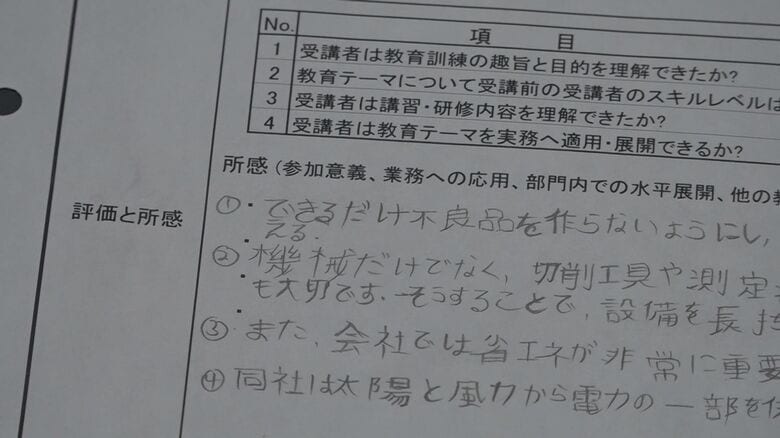 No. 項 目
1 受講者は教育訓練の趣旨と目的を理解できたか?
2 教育テーマについて受講前の受講者のスキルレベルは
3 受講者は講習・研修内容を理解できたか?
4 受講者は教育テーマを実務へ適用・展開できるか?
所感(参加意義、業務への応用、部門内での水平展開、他の教
評価と所感
①・できるだけ不良品を作らないようにし,
える.
②機械だけでなく, 切削工具や測定
も大切です. そうすることで, 設備を長持
③. また, 会社では省エネが非常に重要
④同社は太陽と風力から電力の一部を